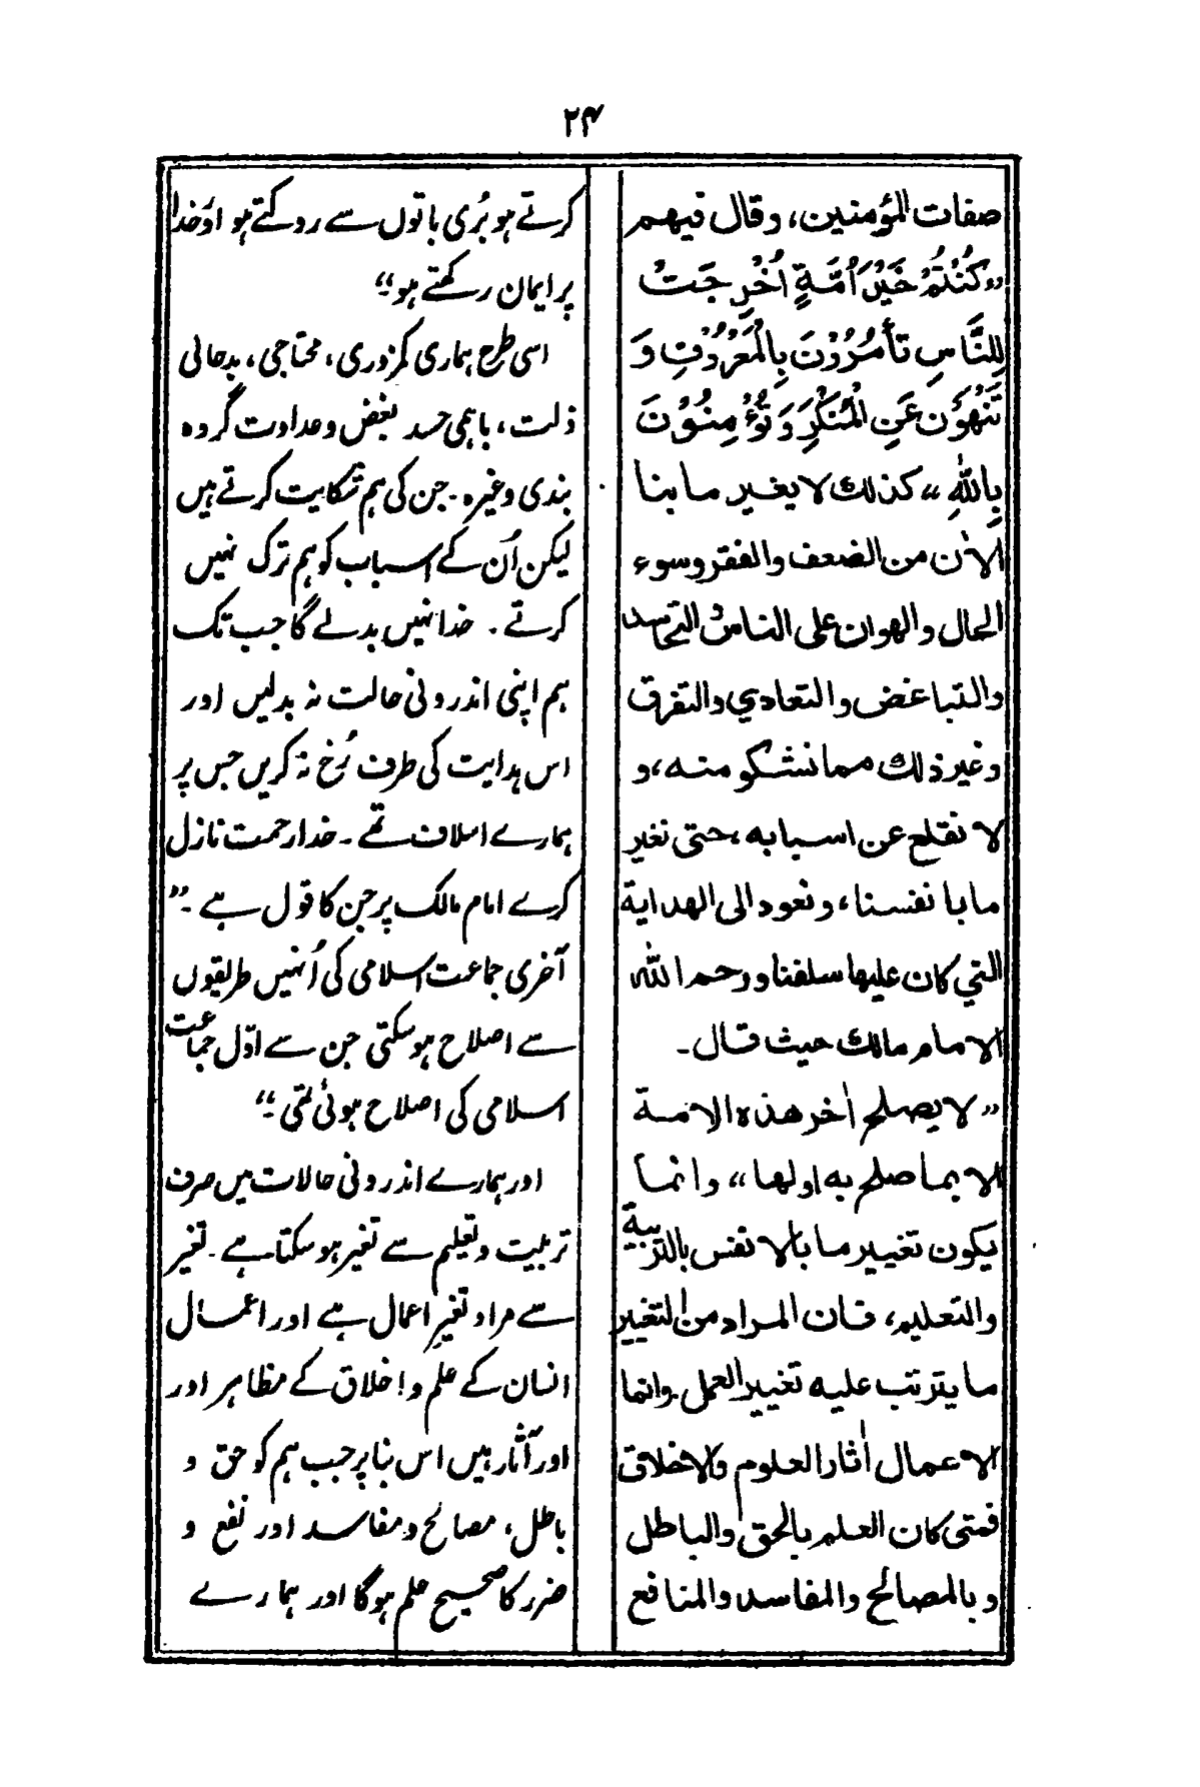 ۲۴
صفات المؤمنین، وقال فیهم
«كُنْتُمْ خَيْرَ أُمَّةٍ أُخْرِجَتْ
لِلنَّاسِ تَأْمُرُوْنَ بِالْمَعْرُوْفِ وَ
تَنْهَوْنَ عَنِ الْمُنْكَرِ وَتُؤْمِنُوْنَ
بِاللّٰهِ» كذلك لا یغیر ما بنا
الاٰن من الضعف والفقر وسوء
الحال والهوان علی الناس والتحاسد
والتباغض والتعادي والتفرق
وغیر ذلك مما نشکو منه، و
لا نقلع عن اسبابه، حتی نغیر
ما بانفسنا، ونعود الی الهدایة
التي کان علیها سلفنا ورحم الله
الامام مالك حیث قال۔
«لا یصلح اٰخر هذه الامة
الا بما صلح به اولها» وانما
یکون تغییر ما بالانفس بالتربیة
والتعلیم، فان المراد من التغییر
ما یترتب علیه تغییر العمل وانما
الاعمال اٰثار العلوم والاخلاق
فمتی کان العلم بالحق والباطل
وبالمصالح والمفاسد والمنافع
کرتے ہو بُری باتوں سے روکتے ہو اور خدا
پر ایمان رکھتے ہو“
اسی طرح ہماری کمزوری، محتاجی، بدحالی
ذلت، باہمی حسد بغض وعداوت گروہ
بندی وغیرہ۔ جن کی ہم شکایت کرتے ہیں
لیکن اُن کے اسباب کو ہم ترک نہیں
کرتے۔ خدا نہیں بدلے گا جب تک
ہم اپنی اندرونی حالت نہ بدلیں اور
اس ہدایت کی طرف رُخ نہ کریں جس پر
ہمارے اسلاف تھے۔ خدا رحمت نازل
کرے امام مالک پر جن کا قول ہے۔”
آخری جماعت اسلامی کی اُنہیں طریقوں
سے اصلاح ہوسکتی جن سے اوّل جماعت
اسلامی کی اصلاح ہوئی تھی۔“
اور ہمارے اندرونی حالات میں صرف
تربیت وتعلیم سے تغیر ہوسکتا ہے۔ تغیر
سے مراد تغیرِ اعمال ہے اور اعمال
انسان کے علم و اخلاق کے مظاہر اور
اور آثار ہیں اس بنا پر جب ہم کو حق و
باطل، مصالح ومفاسد اور نفع و
ضرر کا صحیح علم ہوگا اور ہمارے